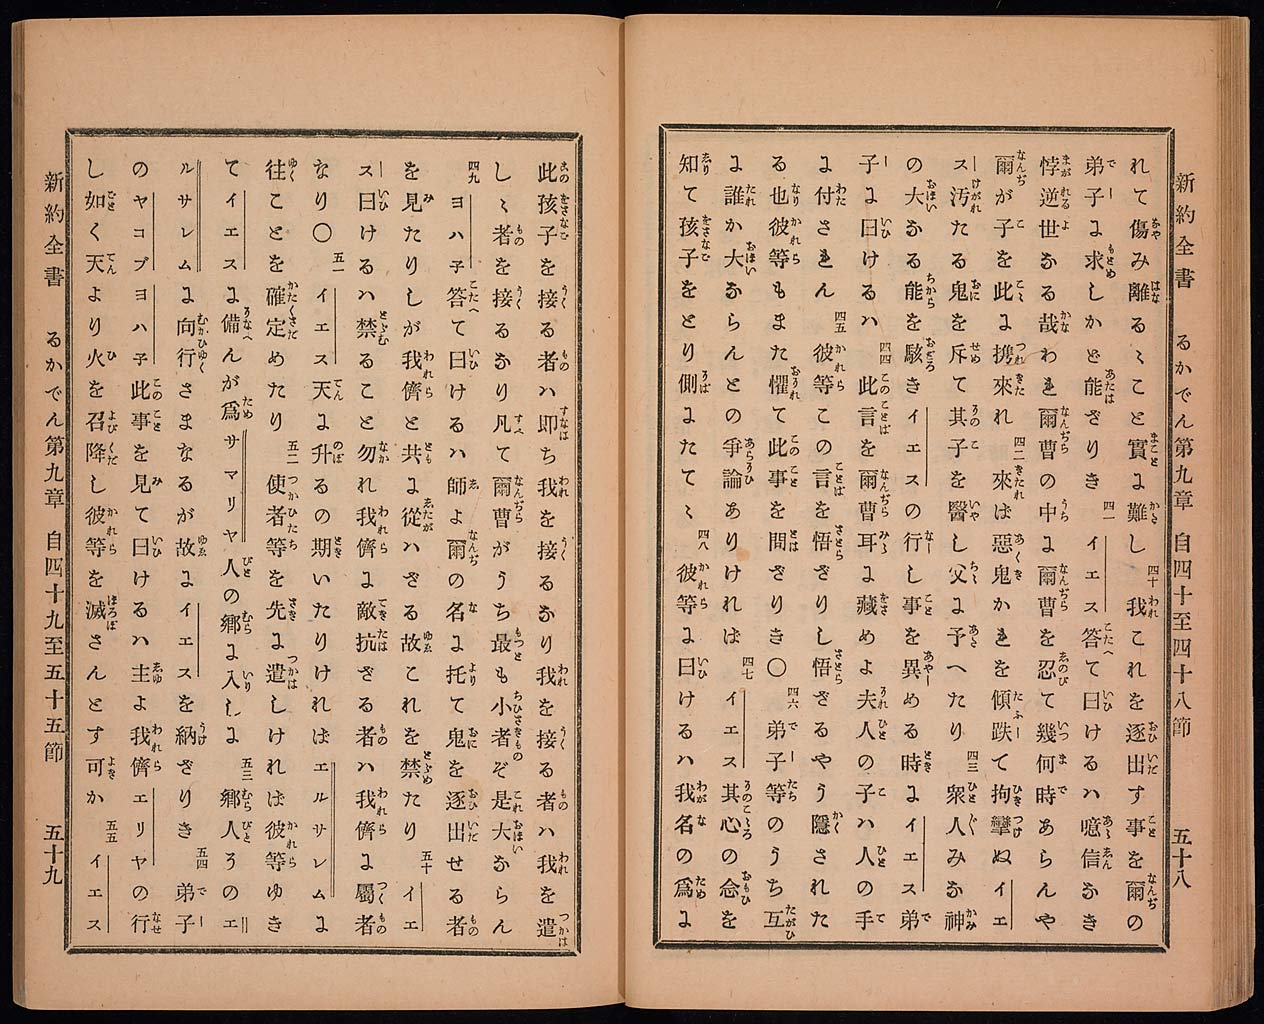 新約全書　るかでん第九章　自四十至四十八節　五十八
れて傷み離るゝこと實に難し四十我これを逐出す事を爾の
弟子に求しかど能ざりき四一イエス答て曰けるハ噫信なき
悖逆世なる哉われ爾曹の中に爾曹を忍て幾何時あらんや
爾が子を此に携來れ四二來ば惡鬼かれを傾跌て拘攣ぬイエ
ス汚たる鬼を斥て其子を醫し父に予へたり四三衆人みな神
の大なる能を駭きイエスの行し事を異める時にイエス弟
子に曰けるハ四四此言を爾曹耳に藏めよ夫人の子ハ人の手
に付されん四五彼等この言を悟ざりし悟ざるやう隱された
る也彼等もまた懼て此事を問ざりき〇四六弟子等のうち互
に誰か大ならんとの爭論ありければ四七イエス其心の念を
知て孩子をとり側にたてゝ四八彼等に曰けるハ我名の爲に
新約全書　るかでん第九章　自四十九至五十五節　五十九
此孩子を接る者ハ即ち我を接るなり我を接る者ハ我を遣
しゝ者を接るなり凡て爾曹がうち最も小者ぞ是大ならん
四九ヨハ子答て曰けるハ師よ爾の名に托て鬼を逐出せる者
を見たりしが我儕と共に從ハざる故これを禁たり五十イエ
ス曰けるハ禁ること勿れ我儕に敵抗ざる者ハ我儕に屬者
なり〇五一イエス天に升るの期いたりければエルサレムに
往ことを確定めたり五二使者等を先に遣しければ彼等ゆき
てイエスに備んが爲サマリヤ人の郷に入しに五三郷人そのエ
ルサレムに向行さまなるが故にイエスを納ざりき五四弟子
のヤコブヨハ子此事を見て曰けるハ主よ我儕エリヤの行
し如く天より火を召降し彼等を滅さんとす可か五五イエス